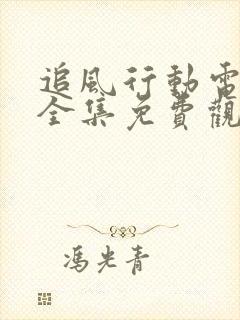 追風行動電
全集免費觀
馮光青